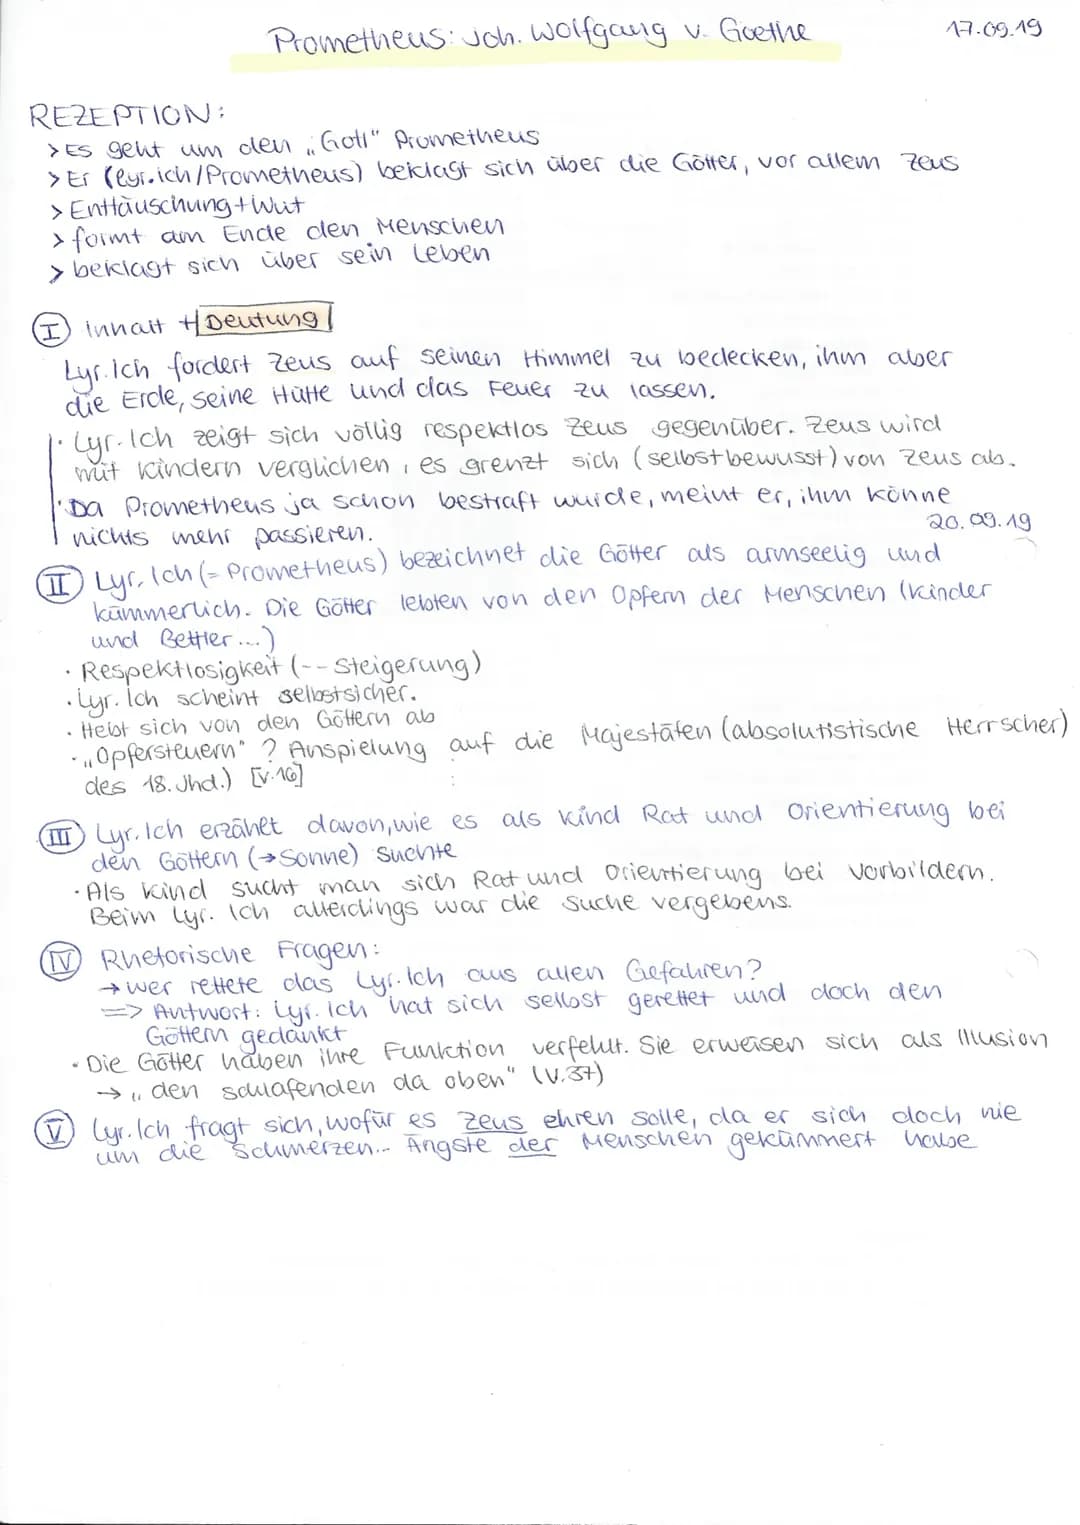 Prometheus: Joh. Wolfgang v. Goethe
17.09.19
REZEPTION:
> Es geht um den „Gott" Prometheus
> Er (lyr.ich/Prometheus) beklagt sich über die Götter, vor allem Zeus
> Enttäuschung + Wut
> formt am Ende den Menschen
> beklagt sich über sein Leben
I Inhalt + Deutung
Lyr. Ich fordert Zeus auf seinen Himmel zu bedecken, ihm aber
die Erde, seine Hütte und das Feuer zu lassen.
· Lyr. Ich zeigt sich völlig respektlos Zeus gegenüber. Zeus wird
mit Kindern verglichen, es grenzt sich (selbstbewusst) von Zeus ab.
· Da Prometheus ja schon bestraft wurde, meint er, ihm könne
nichts mehr passieren.
20.09.19
II Lyr. Ich (= Prometheus) bezeichnet die Götter als armseelig und
kümmerlich. Die Götter lebten von den Opfern der Menschen (Kinder
und Bettler...)
· Respektlosigkeit (-- Steigerung)
· Lyr. Ich scheint selbstsicher.
· Hebt sich von den Göttern ab
· „Opfersteuern" ? Anspielung auf die Majestäten (absolutistische Herrscher)
des 18. Jhd.) [V.16]
III Lyr. Ich erzählt davon, wie es als Kind Rat und Orientierung bei
den Göttern (→ Sonne) suchte
· Als Kind sucht man sich Rat und Orientierung bei Vorbildern.
Beim Lyr. Ich allerdings war die Suche vergebens.
IV Rhetorische Fragen:
→ Wer rettete das Lyr. Ich aus allen Gefahren?
=> Antwort: Lyr. Ich hat sich selbst gerettet und doch den
Göttern gedankt
· Die Götter haben ihre Funktion verfehlt. Sie erweisen sich als Illusion
→ „den schlafenden da oben" (V.37)
V Lyr. Ich fragt sich, wofür es Zeus ehren solle, da er sich doch nie
um die Schmerzen... Ängste der Menschen gekümmert habe